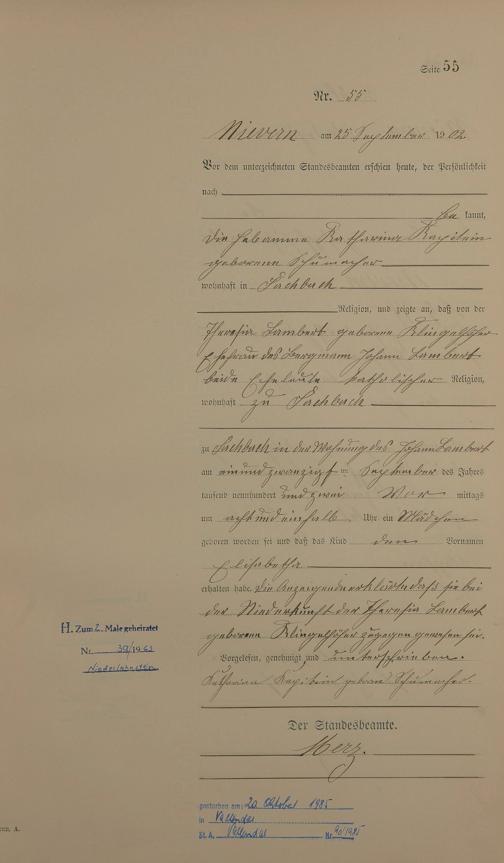 Seite 55
Nr. 55
Nievern am 25 September 1902
Vor dem unterzeichneten Standesbeamten erschien heute, der Persönlichkeit
nach
be kannt,
die Hebamme Katharina Kapitein
geborene Schumacher
wohnhaft in Fachbach
Religion, und zeigte an, daß von der
Theresia Lambert geborene Klingelhöfer
Ehefrau des Bergmann Johann Lambert
beide Eheleute katholischer Religion,
wohnhaft zu Fachbach
zu Fachbach in der Wohnung des Johann Lambert
am einundzwanzigsten September des Jahres
tausend neunhundert und zwei Vor mittags
um acht und einhalb Uhr ein Mädchen
geboren worden sei und daß das Kind den Vornamen
Elisabetha
erhalten habe. Die Anzeigende erklärte daß sie bei
der Niederkunft der Theresia Lambert
geborenen Klingelhöfer zugegen gewesen sei.
Vorgelesen, genehmigt und unterschrieben.
Katharina Kapitein geborene Schumacher.
Der Standesbeamte.
Merz.
H. Zum 2. Male geheiratet
Nr. 39/1963
Niederlahnstein
gestorben am: 20 Oktober 1985
in Vallendar
St. A. Vallendar Nr. 90/1985